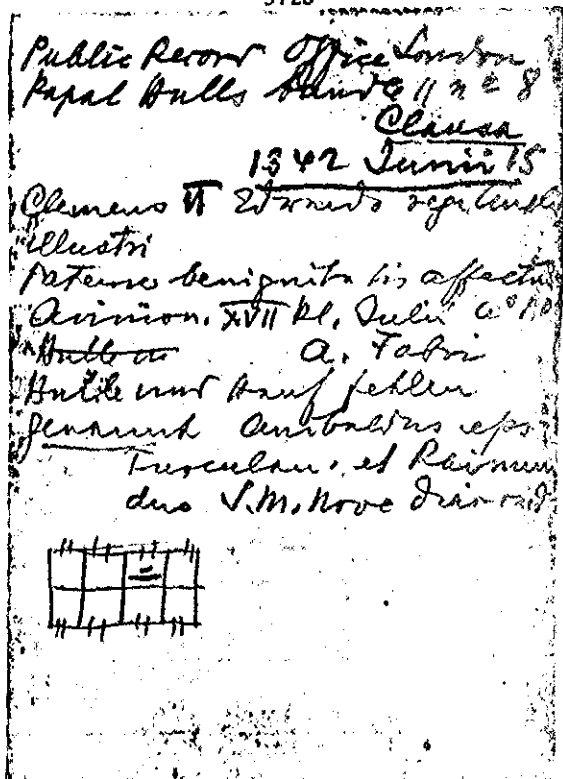 Public Record Office London
Papal Bulls Bundle 11 nº 8
Clausa
1342 Junii 15
Clemens VI Edwardo regi Angl
illustri
Paterne benignitatis affectu
Avinion. XVII kl. Julii aº
A. Fabri
Bulle und Hanf fehlen
genannt Anibaldus eps
Tusculan. et Raimun
dus S. M. Nove diac card